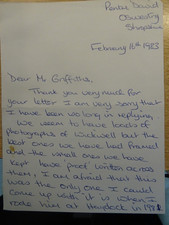 Oswestry
Shropshire
February 11th 1983
Dear Mr Griffiths,
Thank you very much for
your letter I am very sorry that
I have been so long in replying.
We seem to have loads of
photographs of but the
best ones we have had framed
and the small ones we have
kept have proof written across
them, I am afraid that this
was the only one I could
come up with. it is when I
rode him at Haydock in 198